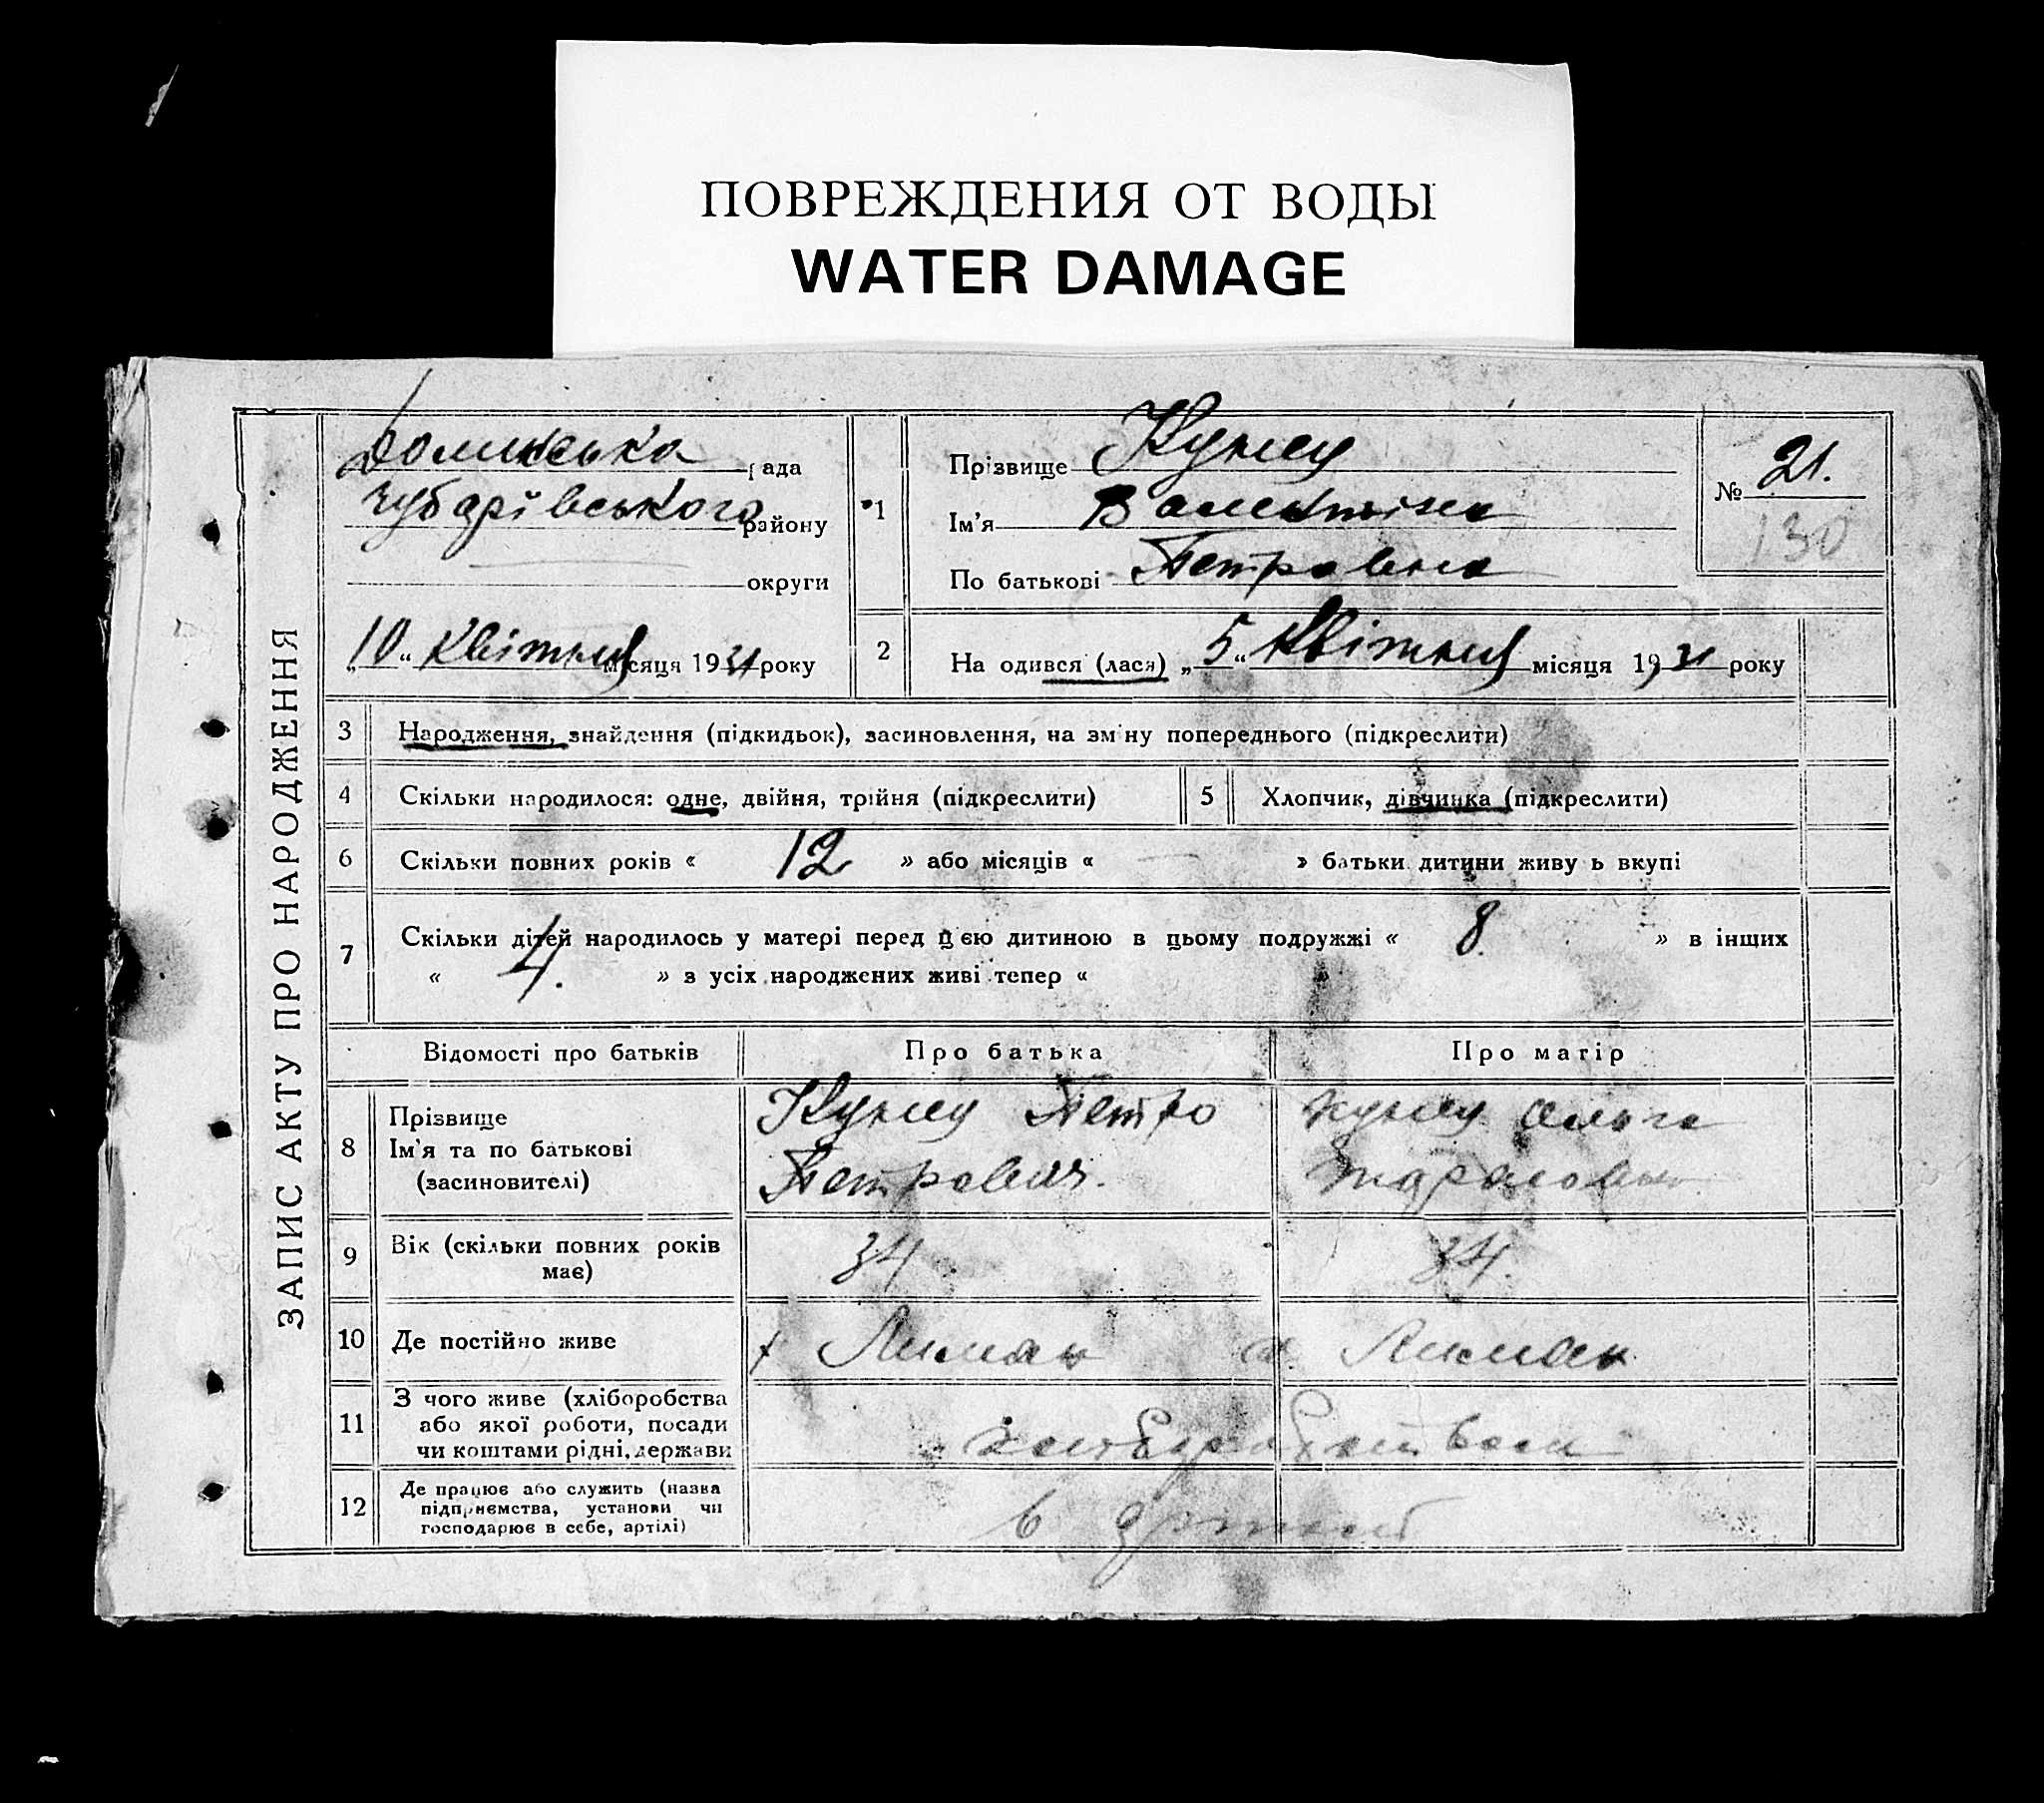 ПОВРЕЖДЕНИЯ ОТ ВОДЫ
WATER DAMAGE
ЗАПИС АКТУ ПРО НАРОДЖЕННЯ
Долинська рада
Чубарівського району
округи
„10“ Квітня місяця 1931 року
1
Прізвище
Ім'я Валентина
По батькові Петровна
№ 21.
130
2
На одився (лася) „5“ Квітня місяця 1931 року
3 Народження, знайдення (підкидьок), засиновлення, на зм ну попереднього (підкреслити)
4 Скільки народилося: одне, двійня, трійня (підкреслити)
5 Хлопчик, дівчинка (підкреслити)
6 Скільки повних років « 12 » або місяців « — » батьки дитини живу ь вкупі
7 Скільки дітей народилось у матері перед цією дитиною в цьому подружжі « 8. » в інщих
« 4. » з усіх народжених живі тепер « »
Відомості про батьків Про батька Про матір
8 Прізвище
Ім'я та по батькові
(засиновителі)
Петро
Петрович.
Ольга
9 Вік (скільки повних років
має)
34
34.
10 Де постійно живе
Лиман
Лиман
11 З чого живе (хліборобства
або якої роботи, посади
чи коштами рідні, держави
12 Де працює або служить (назва
підприємства, установи чи
господарює в себе, артілі)
в